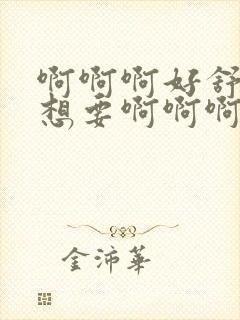 啊啊啊好舒
想要啊啊啊
金沛華